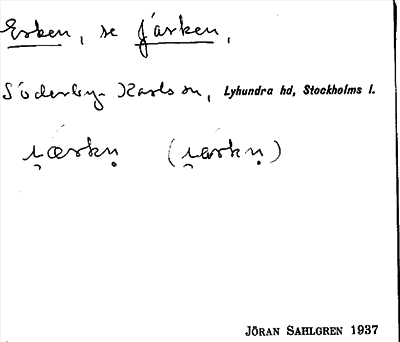 Esken, se Järken,
Söderby-Karls sn, Lyhundra hd, Stockholms l.
ı̯ærkn̥ (ı̯arkn̥)
JÖRAN SAHLGREN 1937